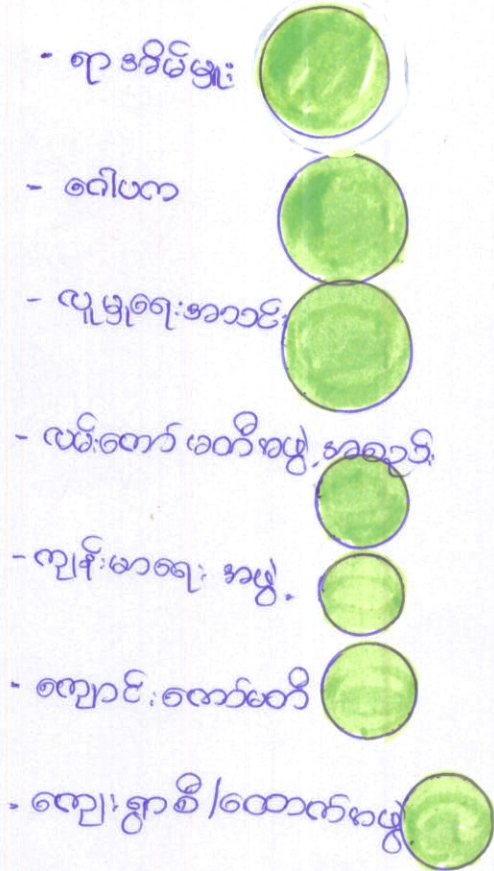 - ရာအိမ်မှူး
- ဂေါပက
- လူမှုရေးအသင်း
- လမ်းကော်မတီအဖွဲ့
- ကျန်းမာရေး အဖွဲ့
- ကျောင်းကော်မတီ
- ကျေးရွာစီ/ထောက်အဖွဲ့